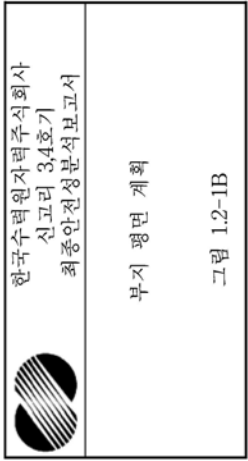 한국수력원자력주식회사
신고리 3,4호기
최종안전성분석보고서
부지 평면 계획
그림 1.2-1B